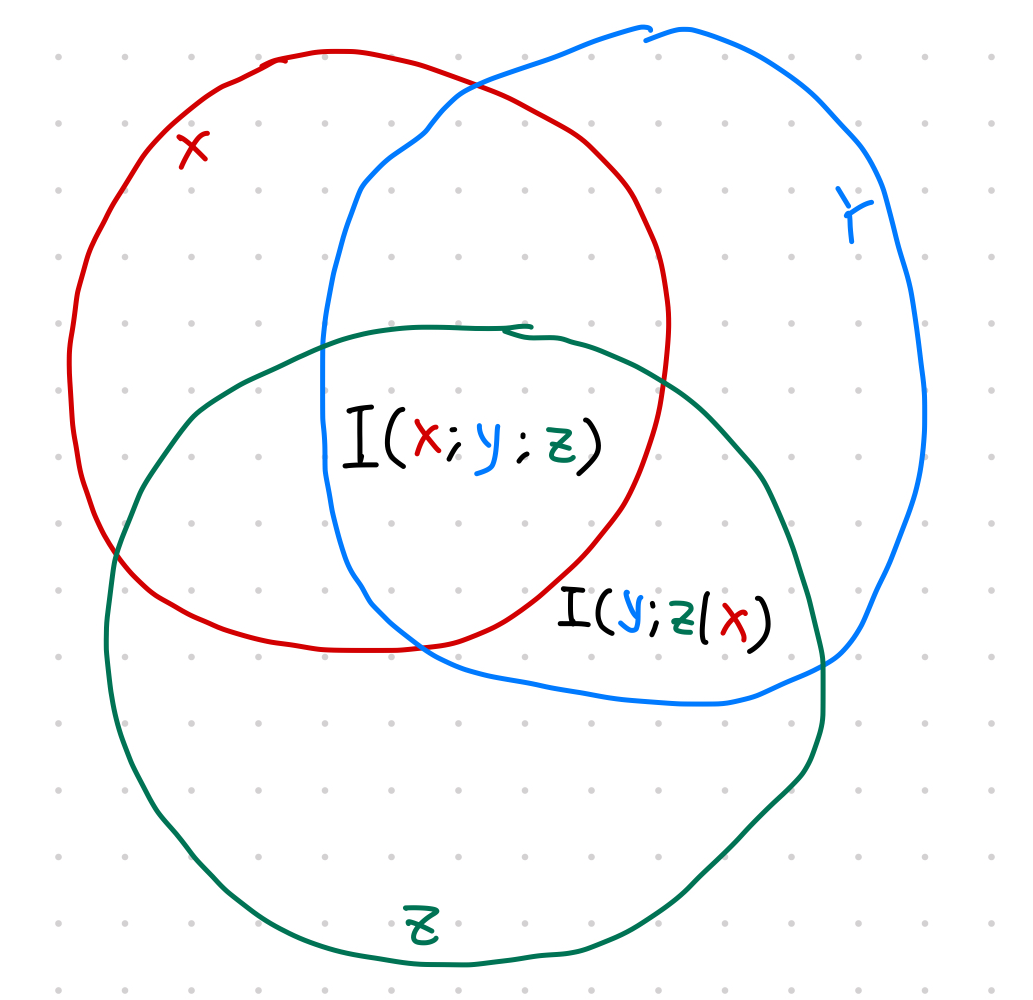 X
Y
I(x; y; z)
I(y; z|x)
z